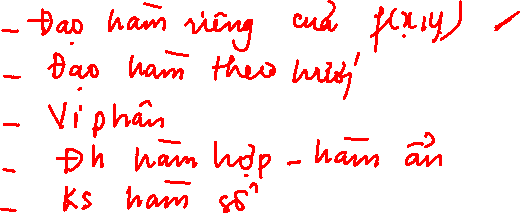 - Đạo hàm riêng của f(x,y)
- Đạo hàm theo hướng
- Vi phân
- Đh hàm hợp - hàm ẩn
- KS hàm số